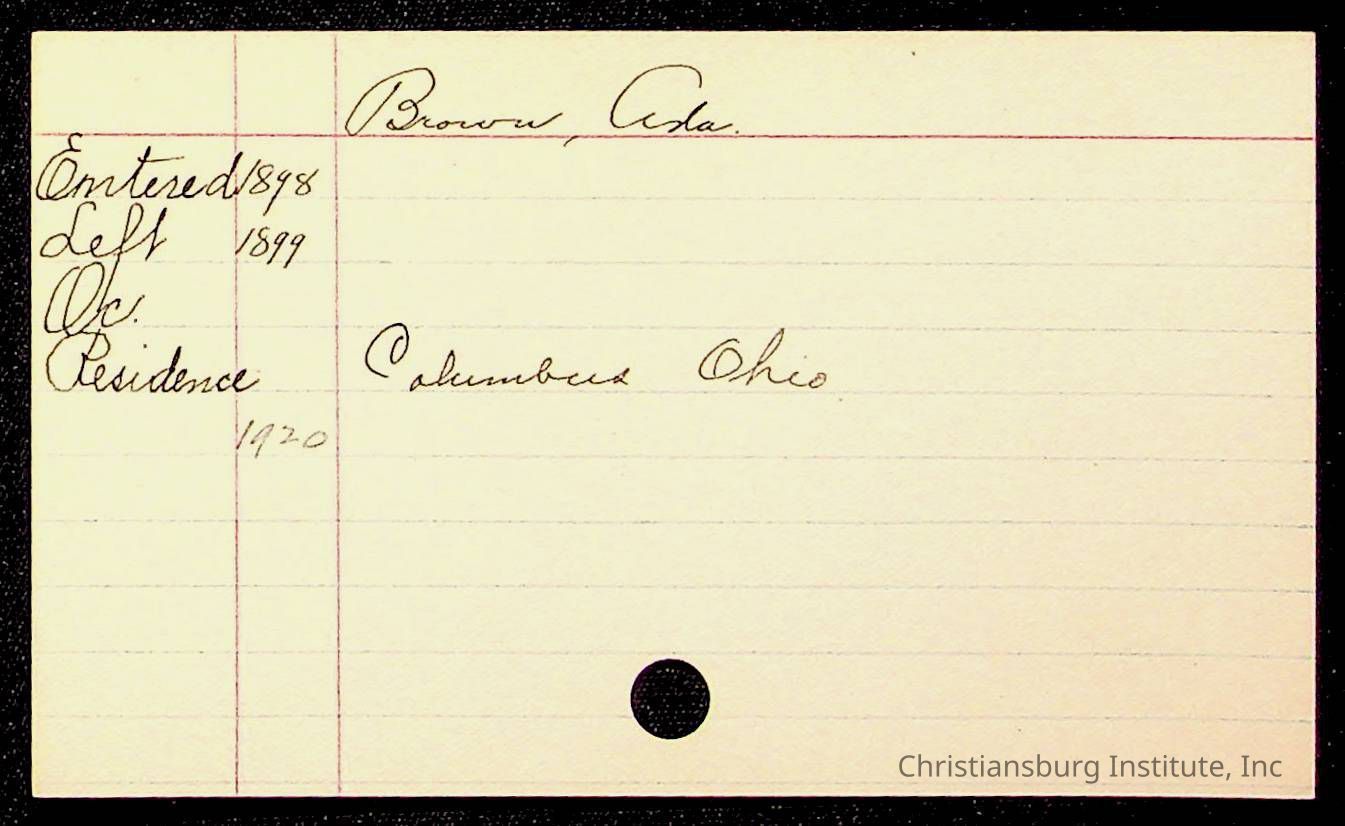 Brown, Ada.
Entered 1898
Left 1899
Oc.
Residence Columbus Ohio
1920
Christiansburg Institute, Inc